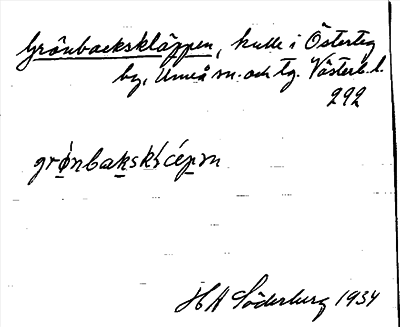 Grönbackskläppen, kulle i Österteg
by, Umeå sn. och tg. Västerb. l.
292
H A Söderberg 1934